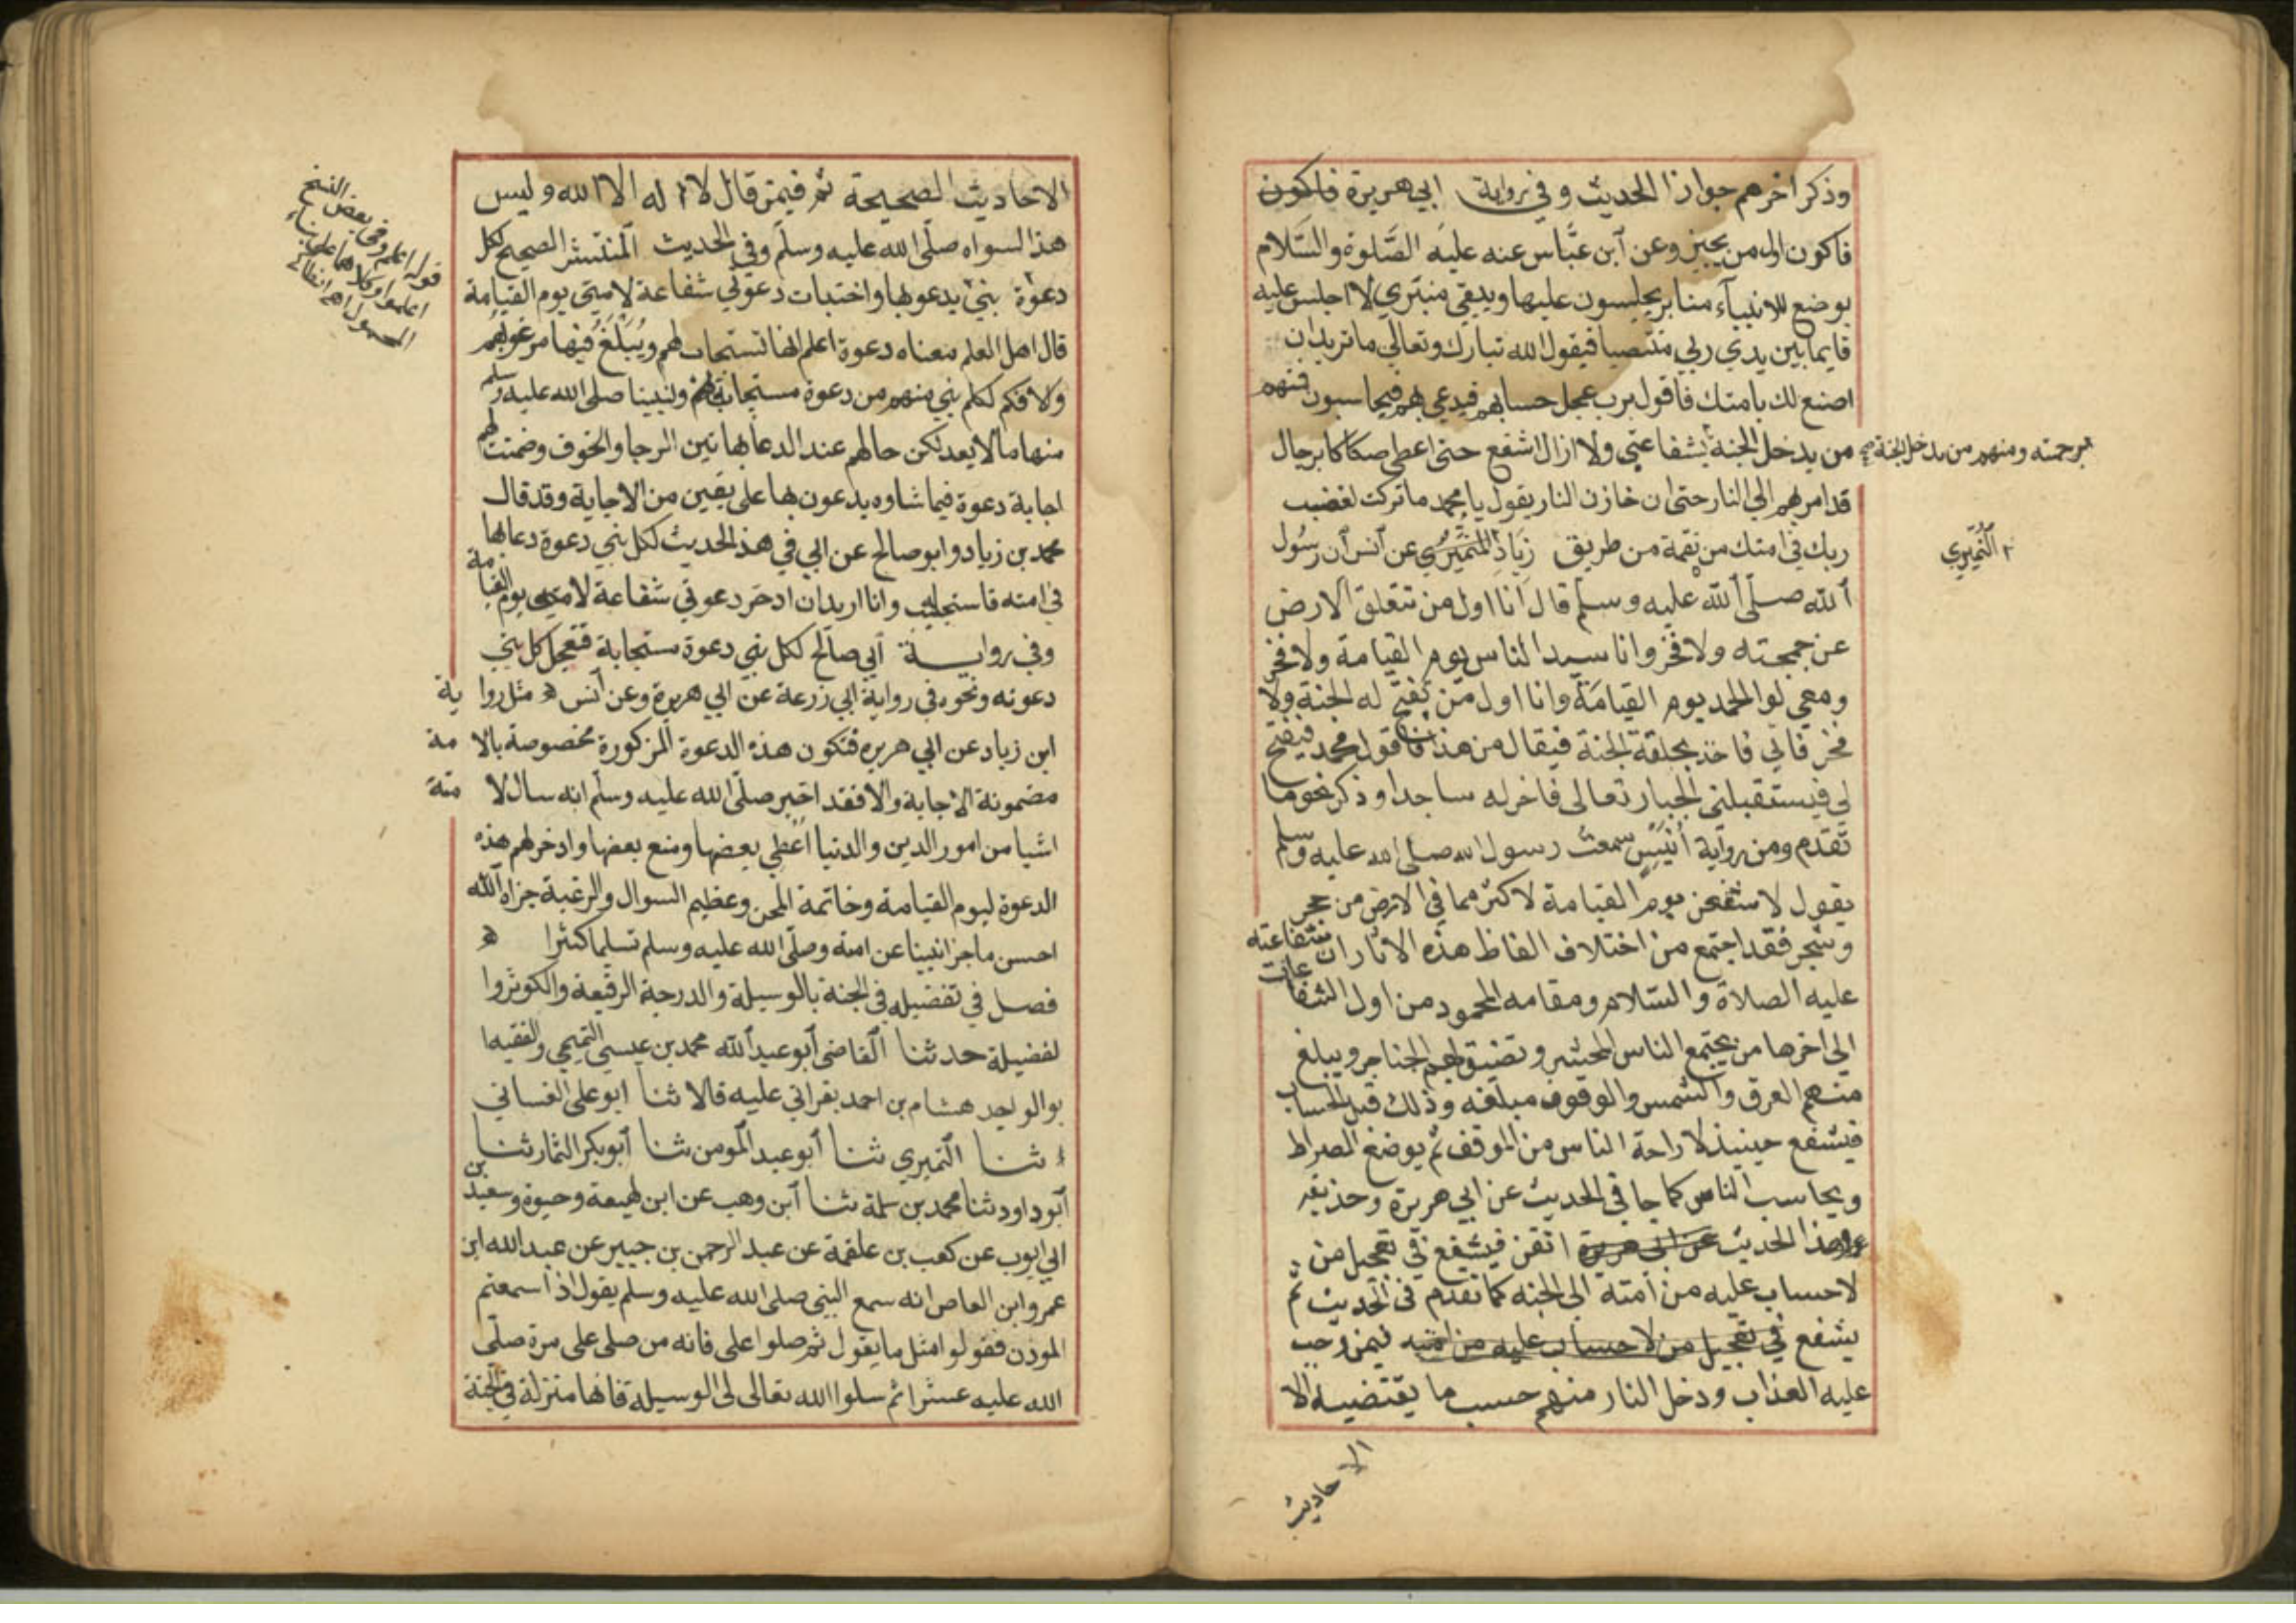 وذكر اخرهم جوازا الحديث وفي رواية ابي هريرة فاكون
فاكون اول من يجيز وعن ابن عباس عنه عليه الصلوة والسلام
يوضع للانبياء منابر يجلسون عليها ويبقي منبري لا اجلس عليه
قايما بين يدي ربي منتصبا فيقول الله تبارك وتعالي ما تريد ان
اصنع لك بامتك فاقول يرب عجل حسابهم فيدعي بهم فيحاسبون فمنهم
من يدخل الجنة بشفاعتي ولا ازال اشفع حتى اعطى صكاكا برجال
برحمته ومنهم من يدخل الجنة صح
قد امر بهم الي النار حتى ان خازن النار يقول يا محمد ما تركت لغضب
ربك في امتك من نقمة من طريق زياد عن انس ان رسول
النميري
الله صلى الله عليه وسلم قال انا اول من تنفلق الارض
عن جمجمته ولا فخر وانا سيد الناس يوم القيامة ولا فخر
ومعي لوا الحمد يوم القيامة وانا اول من تفتح له الجنة ولا
فخر فاتي فاخذ بحلقة الجنة فيقال من هذا فاقول محمد فيفتح
لي فيستقبلني الجبار تعالى فاخر له ساجدا وذكر نحو ما
تقدم ومن رواية انيس سمعت رسول الله صلى الله عليه وسلم
يقول لاشفعن يوم القيامة لاكثر مما في الارض من حجر
وشجر فقد اجتمع من اختلاف الفاظ هذه الاثار ان شفاعته
عليه الصلاة والسلام ومقامه المحمود من اول الشفاعات
الي اخرها من يجتمع الناس للحشر وتضيق بهم الحناجر ويبلغ
منهم العرق والشمس والوقوف مبلغه وذلك قبل الحساب
فيشفع حينيذ لاراحة الناس من الموقف ثم يوضع الصراط
ويحاسب الناس كما جا في الحديث عن ابي هريرة وحذيفه
وهذا الحديث عن ابي هريرة اتقن فيشفع في تعجيل من
لا حساب عليه من امته الى الجنه كما تقدم في الحديث ثم
يشفع في تعجيل من لا حساب عليه من امته فيمن وجب
عليه العذاب ودخل النار منهم حسب ما يقتضيه الا
الاحاديث
الاحاديث الصحيحة ثم فيمن قال لا اله الا الله وليس
هذا لسواه صلى الله عليه وسلم وفي الحديث المنتشر الصحيح لكل
دعوة نبي يدعو بها واختبات دعوتي شفاعة لامتي يوم القيامة
قال اهل العلم معناه دعوة اعلم انها تستجاب لهم ويبلغ فيها مرغوبهم
قوله اعلم وفي بعض النسخ
اعلموا وكلاهما على بناء
المجهول اهـ
والا فكم لكل نبي منهم من دعوة مستجابة ولنبينا صلى الله عليه وسلم
منها ما لا يعد لكن حالهم عند الدعا بها بين الرجا والخوف وضمنت لهم
اجابة دعوة فيما شاوه يدعون بها على يقين من الاجابة وقد قال
محمد بن زياد وابو صالح عن ابي في هذا الحديث لكل نبي دعوة دعا بها
في امته فاستجيب وانا اريد ان ادخر دعوتي شفاعة لامتي يوم القيامة
وفي رواية ابي صالح لكل نبي دعوة مستجابة فتعجل كل نبي
دعوته ونحوه في رواية ابي زرعة عن ابي هريرة وعن انس مثل رواية
ابن زياد عن ابي هريره فتكون هذه الدعوة المزكورة مخصوصة بالامة
مضمونة الاجابة والا فقد اخبر صلى الله عليه وسلم انه سال لامته
اشيا من امور الدين والدنيا اعطي بعضها ومنع بعضها وادخر لهم هذه
الدعوة ليوم القيامة وخاتمة المحن وعظيم السوال والرغبة جزاه الله
احسن ما جزا نبينا عن امته وصلى الله عليه وسلم تسلما كثيرا
فصل في تفضيله في الجنة بالوسيلة والدرجة الرفيعة والكوثر وا
لفضيلة حدثنا القاضي ابو عبد الله محمد بن عيسي التميمي والفقيه ا
بو الوليد هشام بن احمد بقراتي عليه قالا ثنا ابو على الغساني
ثنا النميري ثنا ابو عبد المومن ثنا ابو بكر التمار ثنا
ابو داود ثنا محمد بن سلمة ثنا ابن وهب عن ابن لهيعة وحيوة وسعيد بن
ابي ايوب عن كعب بن علقمة عن عبد الرحمن بن جبير عن عبد الله ابن
عمرو ابن العاص انه سمع النبي صلى الله عليه وسلم يقول اذا سمعتم
الموذن فقولوا مثل ما يقول ثم صلوا على فانه من صلى على مرة صلى
الله عليه عشرا ثم سلوا الله تعالى لى الوسيلة فانها منزلة في الجنة